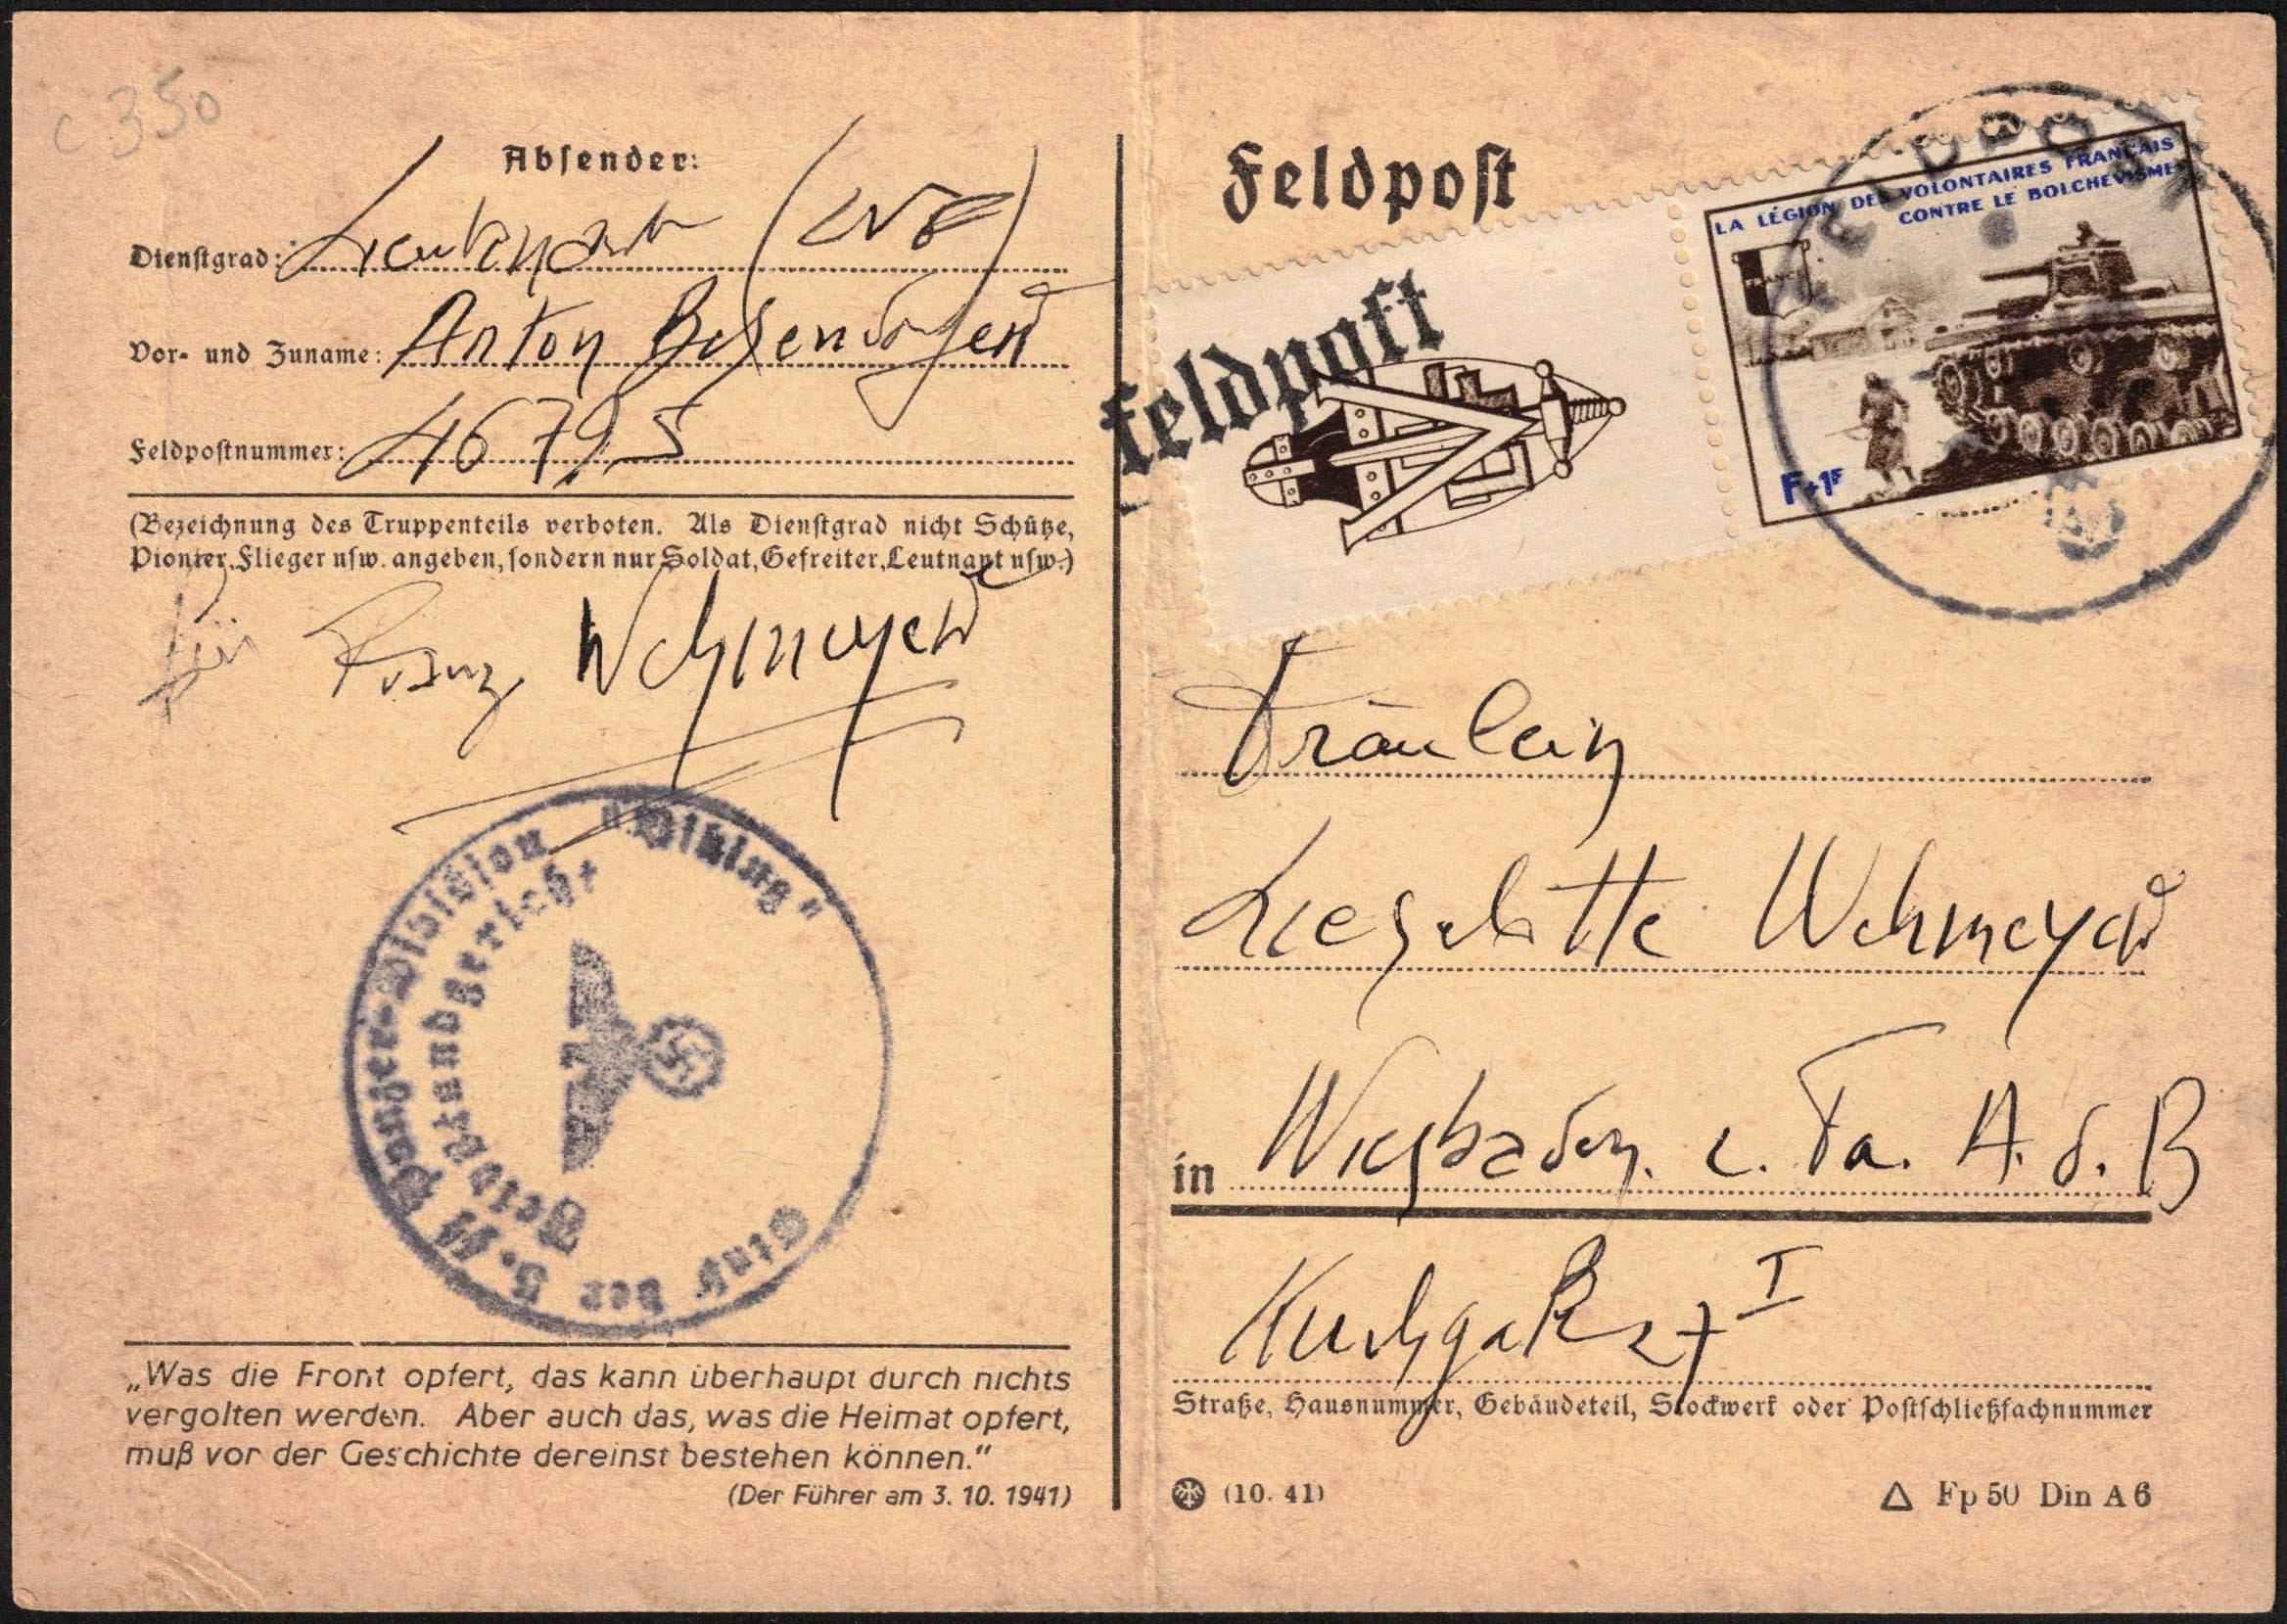 c 350
Absender:
Dienstgrad: Leutnant
Vor- und Zuname: Anton
Feldpostnummer: 46795
(Bezeichnung des Truppenteils verboten. Als Dienstgrad nicht Schütze,
Pionier, Flieger usw. angeben, sondern nur Soldat, Gefreiter, Leutnant usw.)
für Franz Wehmeyer
5. SS Panzer-Division "Wiking"
Feldstandgericht
„Was die Front opfert, das kann überhaupt durch nichts
vergolten werden. Aber auch das, was die Heimat opfert,
muß vor der Geschichte dereinst bestehen können.“
(Der Führer am 3. 10. 1941)
Feldpost
feldpost
LA LÉGION DES VOLONTAIRES FRANÇAIS
CONTRE LE BOLCHEVISME
FRANCE
F+1F
FELDPOST
Fräulein
Lieselotte Wehmeyer
in Wiesbaden
Straße, Hausnummer, Gebäudeteil, Stockwerk oder Postschließfachnummer
(10. 41)
Fp 50 Din A 6